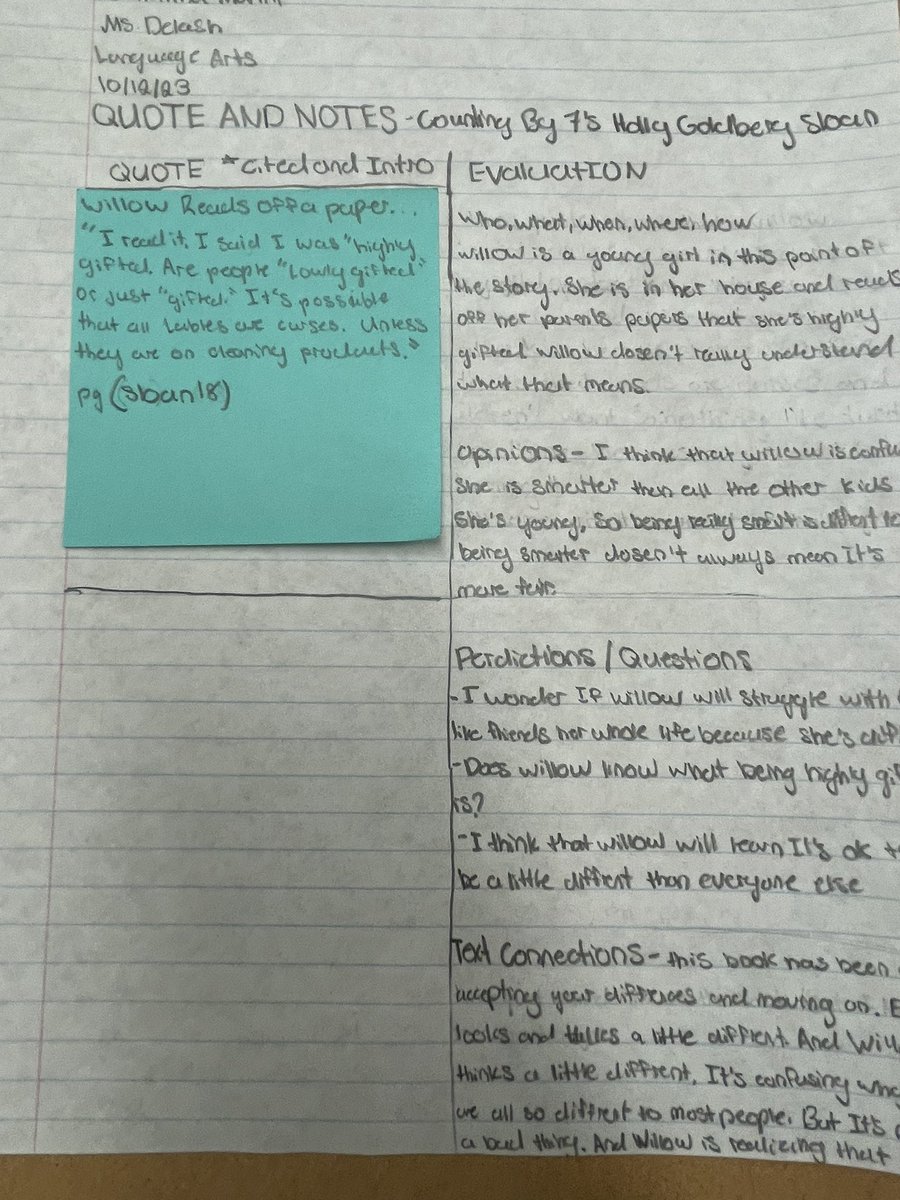 Ms. Delash
Language Arts
10/12/23
QUOTE AND NOTES - Counting By 7's Holly Goldberg Sloan
QUOTE * Cited and Intro
Willow Reads off a paper...
"I read it. I said I was "highly
gifted. Are people "Lowly gifted"
or just "gifted." It's possible
that all lables are curses. Unless
they are on cleaning products."
pg (Sloan 18)
EvaluATION
Who, what, when, where, how
willow is a young girl in this point of
the story. She is in her house and reads
off her parents papers that she's highly
gifted willow dosen't really understand
what that means.
Opinions - I think that willow is
She is smarter then all the other kids
She's young, So being really smart is
being smarter dosen't always mean It's
more fair.
Perdictions / Questions
- I wonder If willow will struggle with
like friends her whole life because she's
- Does willow know what being highly
is?
- I think that willow will learn It's ok
be a little diffrent than everyone else
Text Connections - this book has been
accepting your diffrences and moving on.
looks and talks a little diffrent. And
thinks a little diffrent, It's confusing
we all so diffrent to most people. But It's
a bad thing. And Willow is realizing that